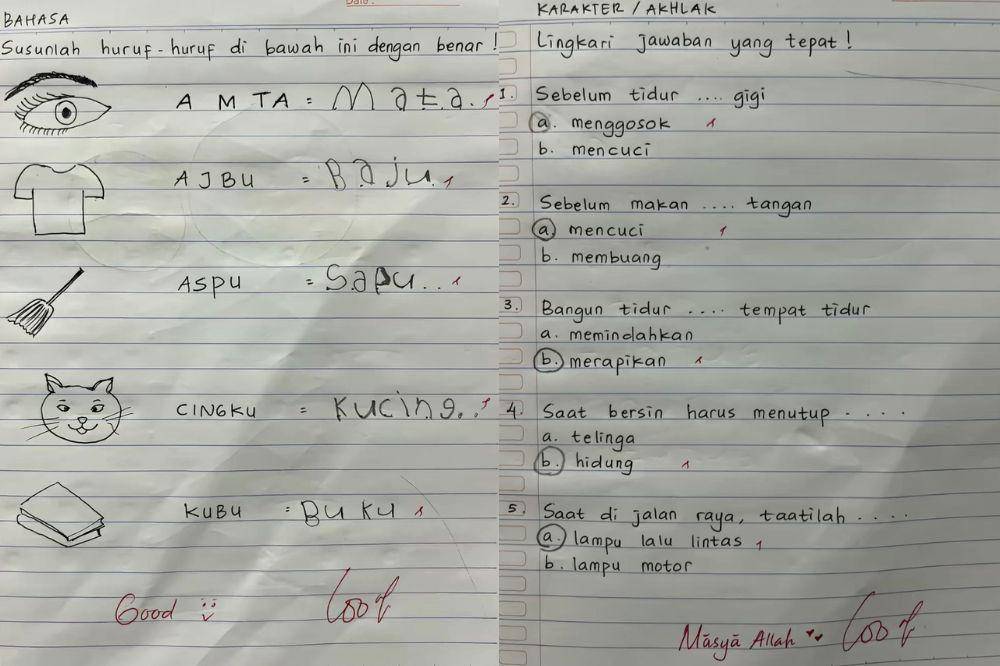 BAHASA
Susunlah huruf-huruf di bawah ini dengan benar!
A M T A = Mata.
A J B U = Baju.
ASPU = Sapu..
CINGKU = Kucing..
KUBU = BUKU
Good
100
KARAKTER / AKHLAK
Lingkari jawaban yang tepat!
1. Sebelum tidur .... gigi
a. menggosok
b. mencuci
2. Sebelum makan .... tangan
a. mencuci
b. membuang
3. Bangun tidur .... tempat tidur
a. memindahkan
b. merapikan
4. Saat bersin harus menutup ....
a. telinga
b. hidung
5. Saat di jalan raya, taatilah ....
a. lampu lalu lintas
b. lampu motor
Māsyā Allah
100